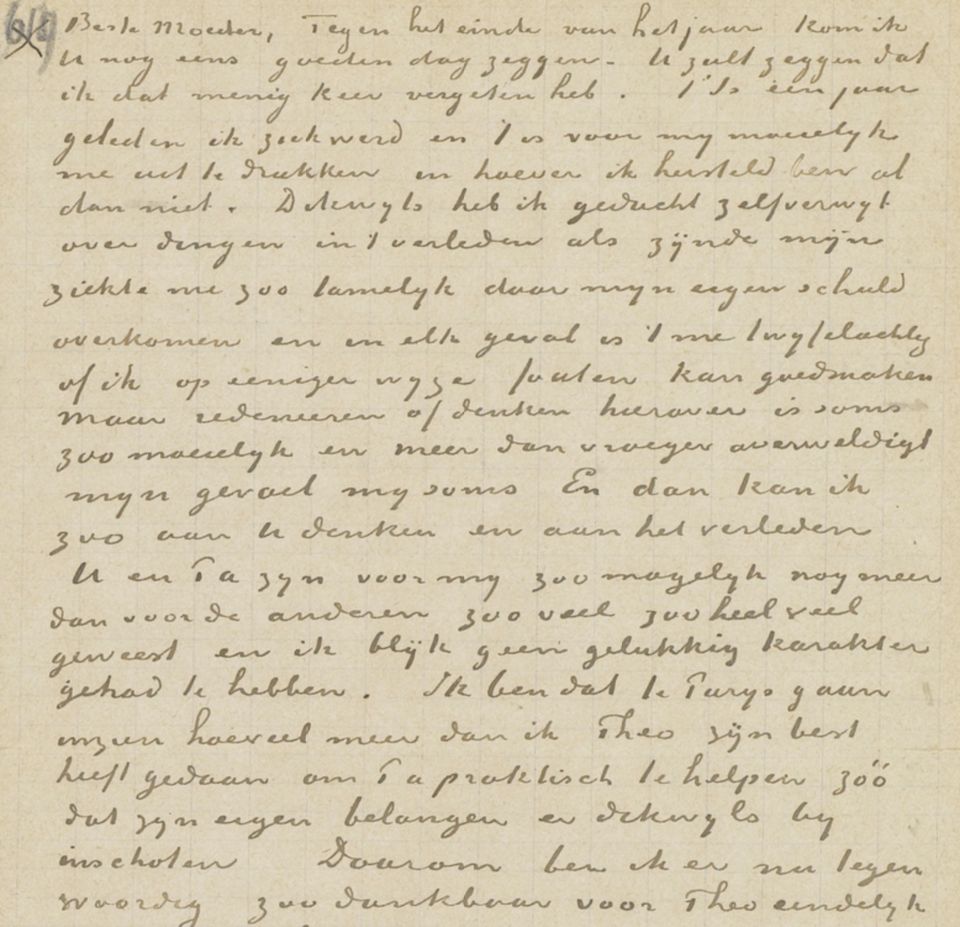 Beste Moeder, Tegen het einde van het jaar kom ik
U nog eens goeden dag zeggen – U zult zeggen dat
ik dat menig keer vergeten heb . 't Is een jaar
geleden ik ziek werd en 't is voor my moeielyk
me uit te drukken in hoever ik hersteld ben al
dan niet . Dikwyls heb ik gedacht zelfverwyt
over dingen in 't verleden als zijnde mijn
ziekte me zoo tamelyk door myn eigen schuld
overkomen en in elk geval is 't me twyfelachtig
of ik op eeniger wyze fouten kan goedmaken
maar redeneeren of denken hierover is soms
zoo moeielyk en meer dan vroeger overweldigt
myn gevoel my soms En dan kan ik
zoo aan U denken en aan het verleden
U en Pa zyn voor my zoo mogelyk nog meer
dan voor de anderen zooveel zoo heel veel
geweest en ik blijk geen gelukkig karakter
gehad te hebben . Ik ben dat te Parys gaan
inzien hoeveel meer dan ik Theo zijn best
heeft gedaan om Pa praktisch te helpen zóó
dat zyn eigen belangen er dikwyls by
inschoten Daarom ben ik er nu tegen
woordig zoo dankbaar voor Theo eindelyk